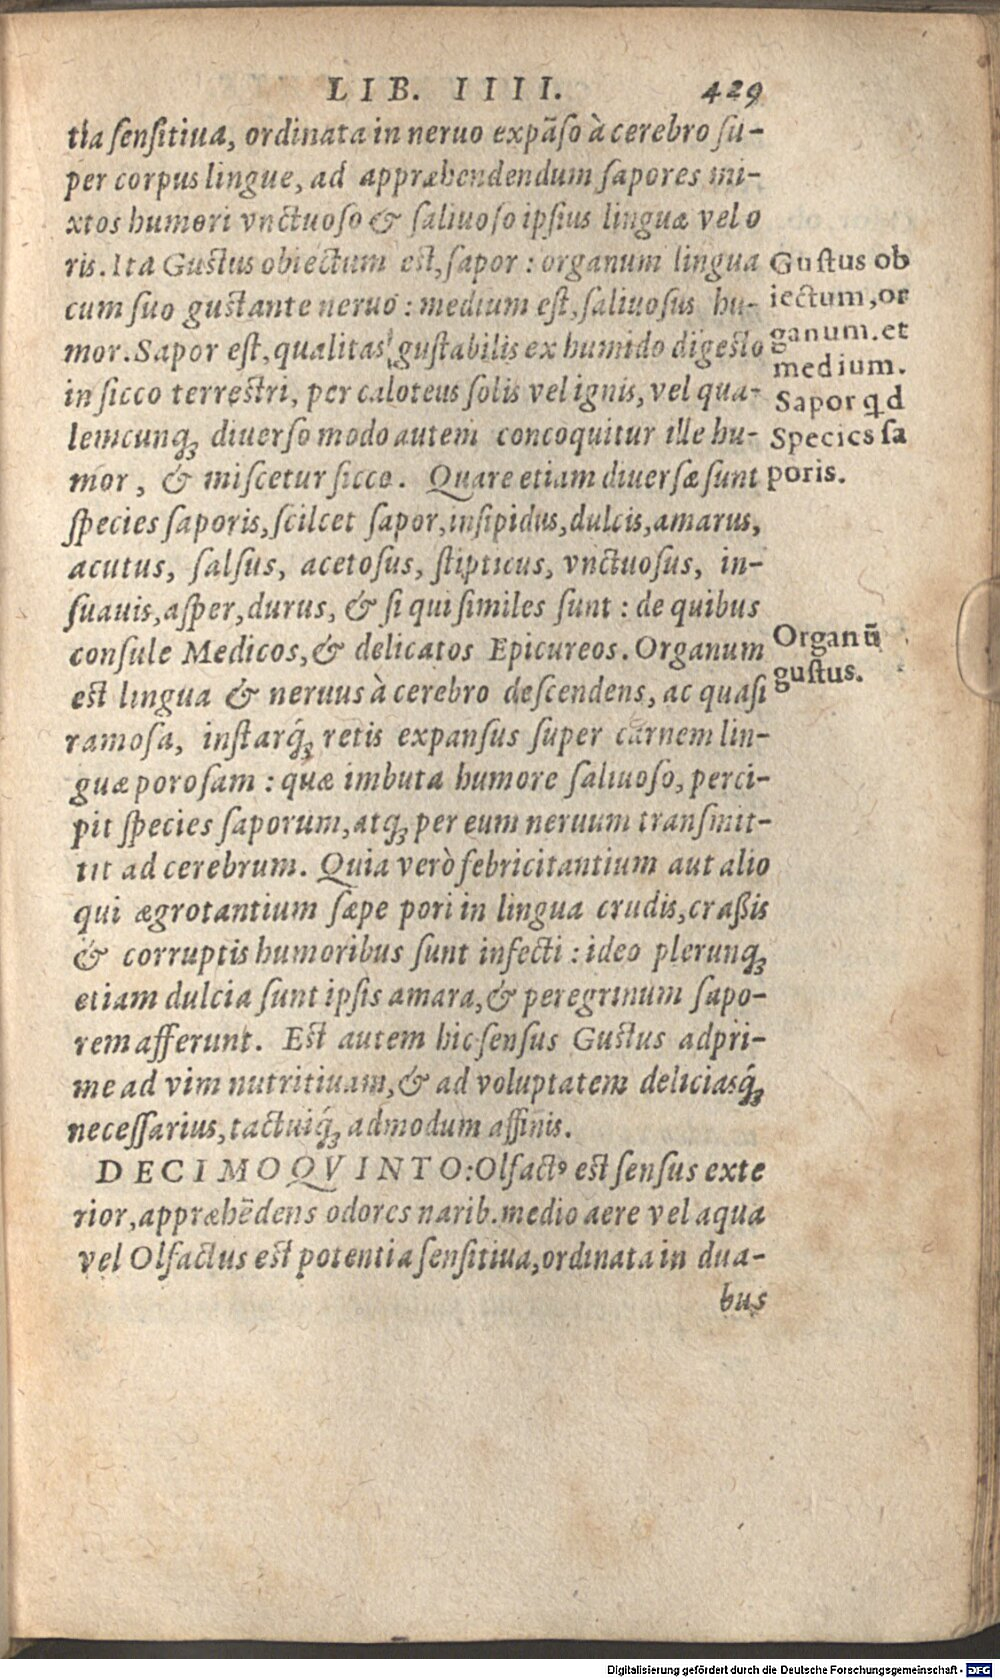 LIB. IIII. 429
tia sensitiua, ordinata in neruo expãso à cerebro su-
per corpus lingue, ad appræhendendum sapores mi-
xtos humori vnctuoso & saliuoso ipsius linguæ vel o
ris. Ita Gustus obiectum est, sapor : organum lingua
cum suo gustante neruo : medium est, saliuosus hu-
mor. Sapor est, qualitas gustabilis ex humido digesto
in sicco terrestri, per caloteus solis vel ignis, vel qua-
lemcunq́ꝫ diuerso modo autem concoquitur ille hu-
mor, & miscetur sicco. Quare etiam diuersæ sunt
species saporis, scilcet sapor, insipidus, dulcis, amarus,
acutus, salsus, acetosus, stipticus, vnctuosus, in-
suauis, asper, durus, & si qui similes sunt : de quibus
consule Medicos, & delicatos Epicureos. Organum
est lingua & neruus à cerebro descendens, ac quasi
ramosa, instarq́ꝫ retis expansus super carnem lin-
guæ porosam : quæ imbuta humore saliuoso, perci-
pit species saporum, atqꝫ per eum neruum transmit-
tit ad cerebrum. Quia verò febricitantium aut alio
qui ægrotantium sæpe pori in lingua crudis, craßis
& corruptis humoribus sunt infecti : ideo plerunqꝫ
etiam dulcia sunt ipsis amara, & peregrinum sapo-
rem afferunt. Est autem hic sensus Gustus adpri-
me ad vim nutritiuam, & ad voluptatem deliciasq́ꝫ
necessarius, tactuiq́ꝫ admodum affinis.
DECIMOQVINTO: Olfactꝰ est sensus exte
rior, appræhẽdens odores narib. medio aere vel aqua
vel Olfactus est potentia sensitiua, ordinata in dua-
bus
Gustus ob
iectum, or
ganum. et
medium.
Sapor qd
Species sa
poris.
Organũ
gustus.
Digitalisierung gefördert durch die Deutsche Forschungsgemeinschaft - DFG